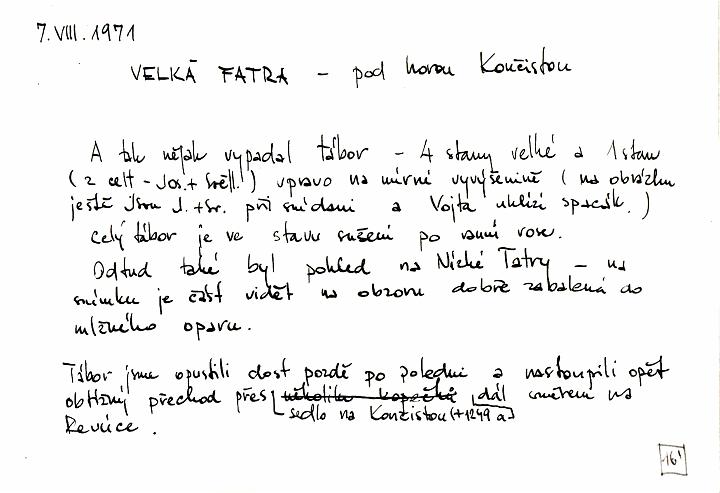 7. VIII. 1971
VELKÁ FATRA – pod horou Končistou
A tak nějak vypadal tábor – 4 stany velké a 1 stan
(z celt – Jos. + Světl.) vpravo na mírné vyvýšenině (na obrázku
ještě jsou J. + Sv. při snídani a Vojta uklízí spacák.)
Celý tábor je ve stavu sušení po ranní rose.
Odtud také byl pohled na Nízké Tatry – na
snímku je část vidět na obzoru dobře zabalená do
mlžného oparu.
Tábor jsme opustili dost pozdě po poledni a nastoupili opět
obtížný přechod přes několik kopečků dál směrem na
sedlo na Končistou (+1249 a)
Revúce.
16'